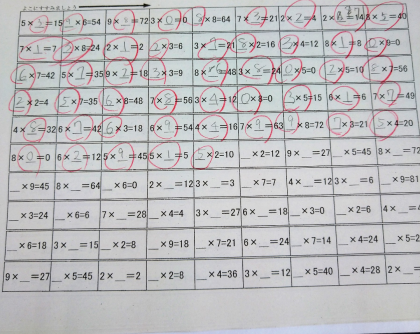 5×3=15 9×6=54 9×8=72 3×0=0 8×8=64 7×3=21 2×2=4 2×7=14 8×5=40
7×1=7 3×8=24 2×1=2 2×3=6 3×7=21 8×2=16 3×4=12 8×1=8 0×9=0
6×7=42 5×7=35 9×2=18 3×3=9 8×6=48 3×8=24 0×5=0 2×5=10 8×7=56
2×2=4 5×7=35 6×8=48 7×8=56 3×4=12 0×8=0 3×5=15 6×1=6 7×7=49
4×8=32 6×7=42 6×3=18 6×9=54 4×4=16 7×9=63 9×8=72 7×3=21 5×4=20
8×0=0 6×2=12 5×9=45 5×1=5 5×2=10 __×2=12 9×__=27 __×5=45 8×__=72
__×9=45 8×__=64 __×6=0 2×__=12 3×__=3 __×7=7 4×__=12 3×__=6 __×9=81
__×3=24 __×6=6 7×__=28 __×4=4 3×__=27 6×__=18 __×3=0 __×2=6 4×__=
__×6=18 3×__=15 __×2=8 __×9=18 __×7=21 6×__=24 __×7=14 __×4=24 __×5=2
9×__=27 __×5=45 2×__=2 __×2=8 __×4=36 3×__=12 __×5=40 __×4=28 2×__=